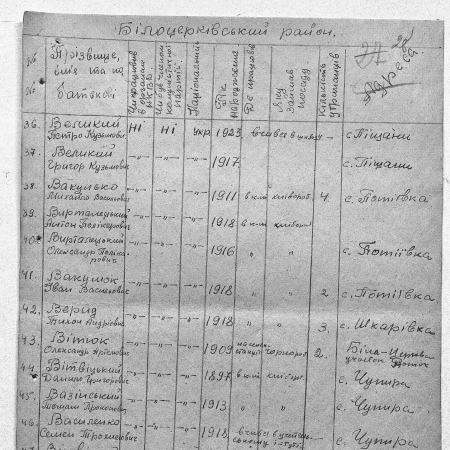 Білоцерківський район.
№№ Прізвище, ім'я та по батькові Чи працював в органах НКВД Чи був членом комуністичної партії Національність Рік народження Де працював Яку займав посаду Кількість утриманців Адреса
36. Великий Петро Кузьмович Ні ні укр 1923 — с. Піщани
37. Великий Григор Кузьмович -"- -"- -"- 1917 с. Піщани
38. Вакулько Михайло Васильович -"- -"- -"- 1911 в к-пі хлібороб 4. с. Потіївка
39. Вирталецький Антон Полікарович -"- -"- -"- 1918 в к-пі хлібороб
40. Вирталецький Олександр Полікарович -"- -"- -"- 1916 " " с. Потіївка
41. Вакулюк Іван Васильович -"- -"- -"- 1918 " " 2 с. Потіївка
42. Верид Тихон Андрієвич -"- -"- -"- 1918 " " 3. с. Шкарівка
43. Вітюк Олександр -"- -"- -"- 1909 2. Біла-Церква
44. Вітвіцький Данило Григорович -"- -"- -"- 1897 в к-пі хлібороб. с. Чупира
45. Вазінський Прокопович -"- -"- -"- 1913 " " с. Чупира
46. Василенко Семен Трохимович -"- -"- -"- 1918 с. Чупира